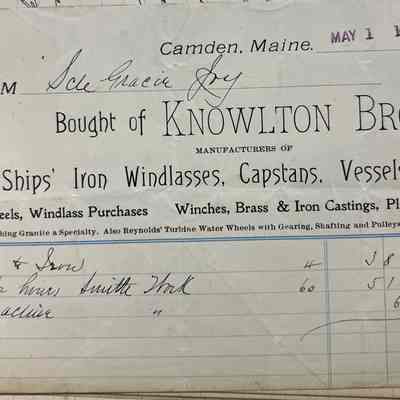 Camden, Maine. MAY 1 1
M Sch Gracie Joy
Bought of KNOWLTON BRO
MANUFACTURERS OF
Ships' Iron Windlasses, Capstans. Vessels
eels, Windlass Purchases Winches, Brass & Iron Castings, Pl
hing Granite a Specialty. Also Reynolds' Turbine Water Wheels with Gearing, Shafting and Pulleys
& Iron 4 3 8
hours Smith Work 60 5 1
" 6